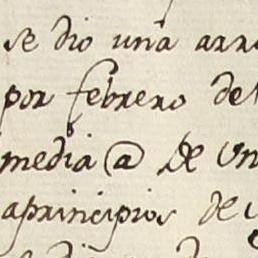 se dio una arr
por febrero de
media @ de un
aprincipios de